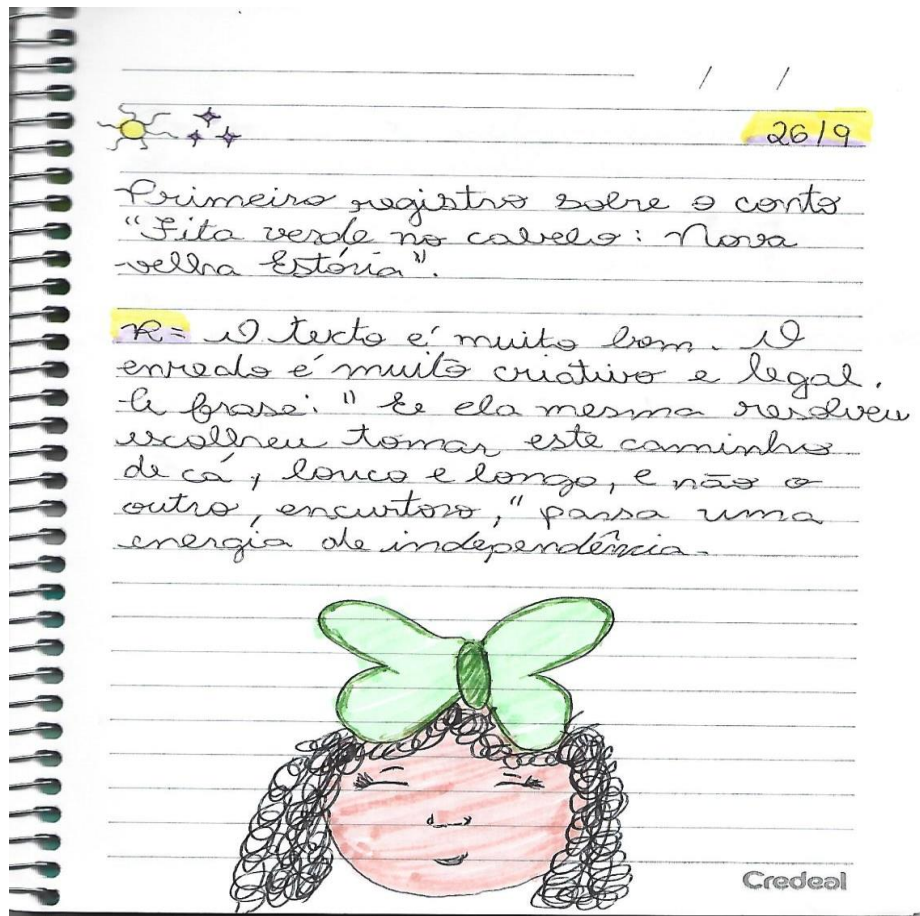 / /
26/9
Primeiro registro sobre o conto
"Fita verde no cabelo: Nova
velha Estória".
R= O texto é muito bom. O
enredo é muito criativo e legal.
A frase: " E ela mesma resolveu
escolheu tomar este caminho
de cá, louco e longo, e não o
outro, encurtoso," passa uma
energia de independência.
Credeal